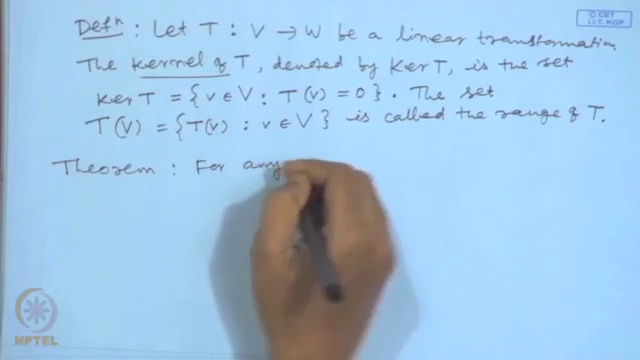 © CET
I.I.T. KGP
Defn : Let T : V → W be a linear transformation.
The kernel of T, denoted by Ker T, is the set
ker T = {v ∈ V : T(v) = 0}. The set
T(V) = {T(v) : v ∈ V} is called the range of T.
Theorem : For any
NPTEL